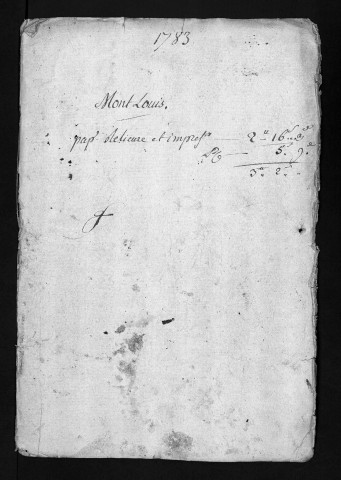 1783
Mont Louis.
pap. et impress. 2 16
5 9
3 2